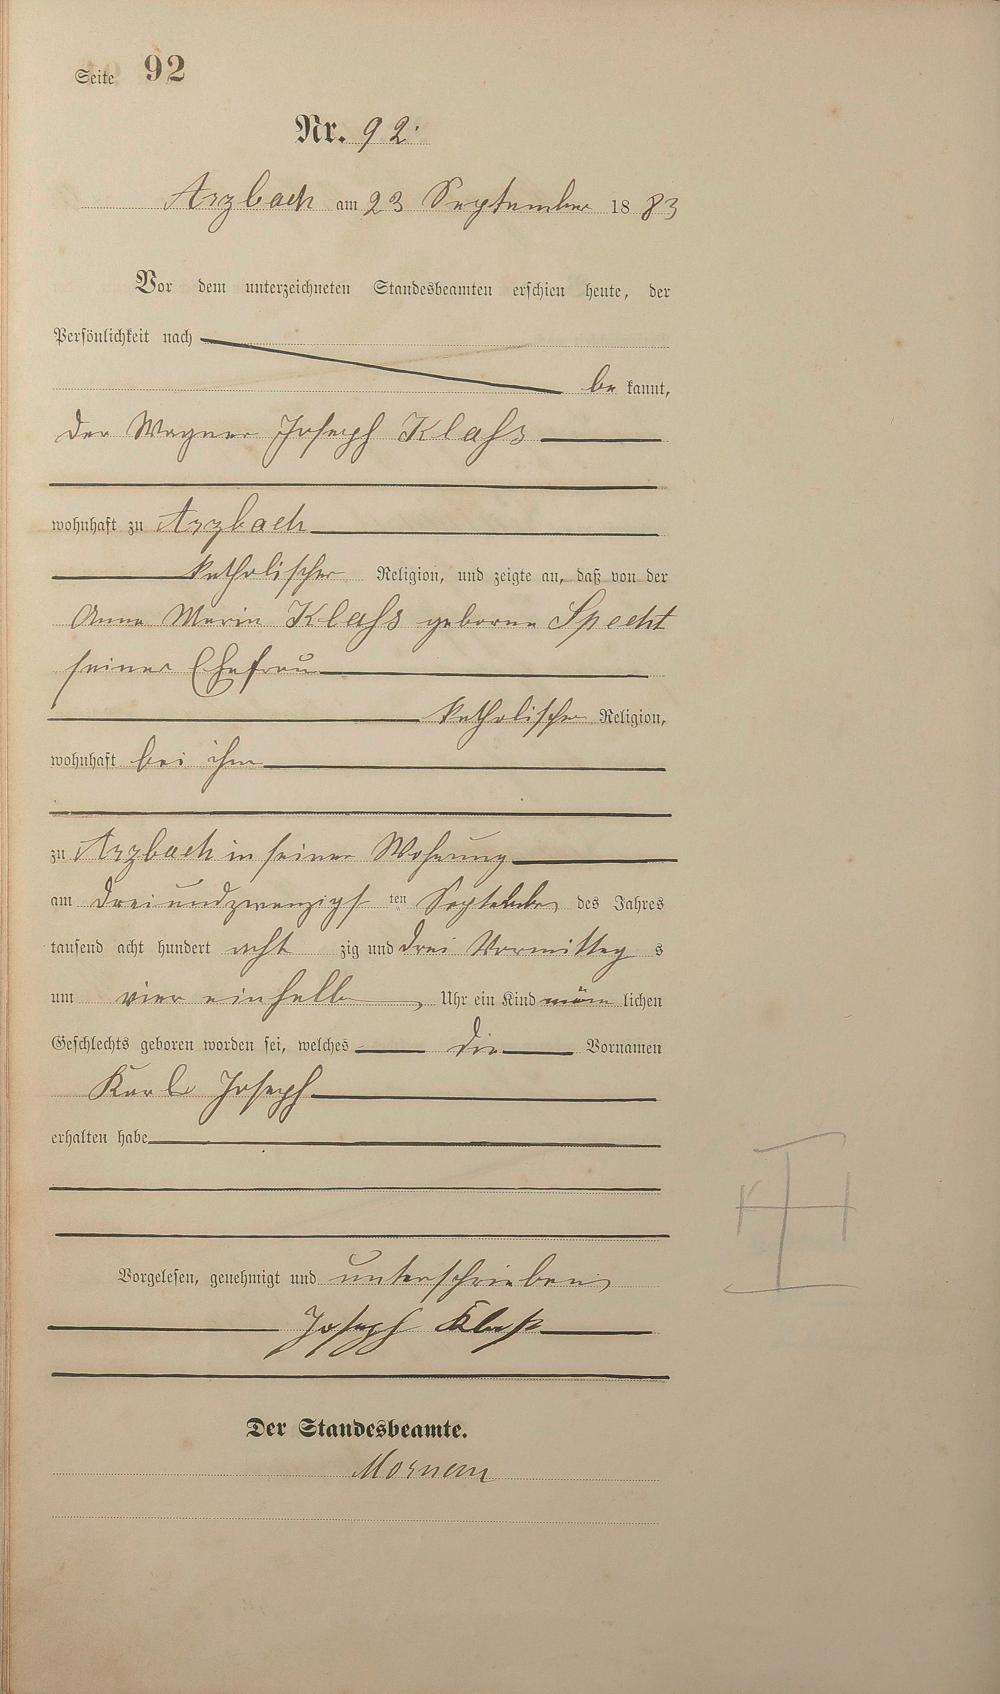 Seite 92
Nr. 92.
Arzbach am 23 September 1883
Vor dem unterzeichneten Standesbeamten erschien heute, der
Persönlichkeit nach
be kannt,
der Wagner Joseph Klaß
wohnhaft zu Arzbach
katholischer Religion, und zeigte an, daß von der
Anna Maria Klaß geborne Specht
seiner Ehefrau
katholischer Religion,
wohnhaft bei ihm
zu Arzbach in seiner Wohnung
am dreiundzwanzigs ten September des Jahres
tausend acht hundert acht zig und drei Vormittag s
um vier einhalb Uhr ein Kind männ lichen
Geschlechts geboren worden sei, welches die Vornamen
Karl Joseph
erhalten habe
Vorgelesen, genehmigt und unterschrieben
Joseph Klaß
Der Standesbeamte.